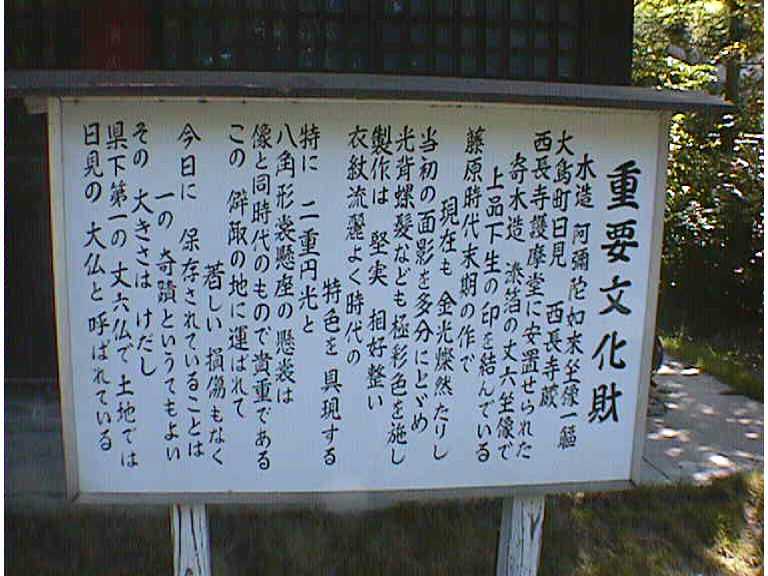 重要文化財
木造 阿彌陀如来坐像一軀
大島町日見 西長寺蔵
西長寺護摩堂に安置せられた
寄木造 漆箔の丈六坐像で
上品下生の印を結んでいる
藤原時代末期の作で
現在も 金光燦然たりし
当初の面影を多分にとゞめ
光背螺髪なども極彩色を施し
製作は 堅実 相好整い
衣紋流麗よく時代の
特色を 具現する
特に 二重円光と
八角形裳懸座の懸裳は
像と同時代のもので貴重である
この 僻陬の地に運ばれて
著しい 損傷もなく
今日に 保存されていることは
一の 奇蹟というてもよい
その 大きさは けだし
県下第一の 丈六仏で 土地では
日見の 大仏と 呼ばれている